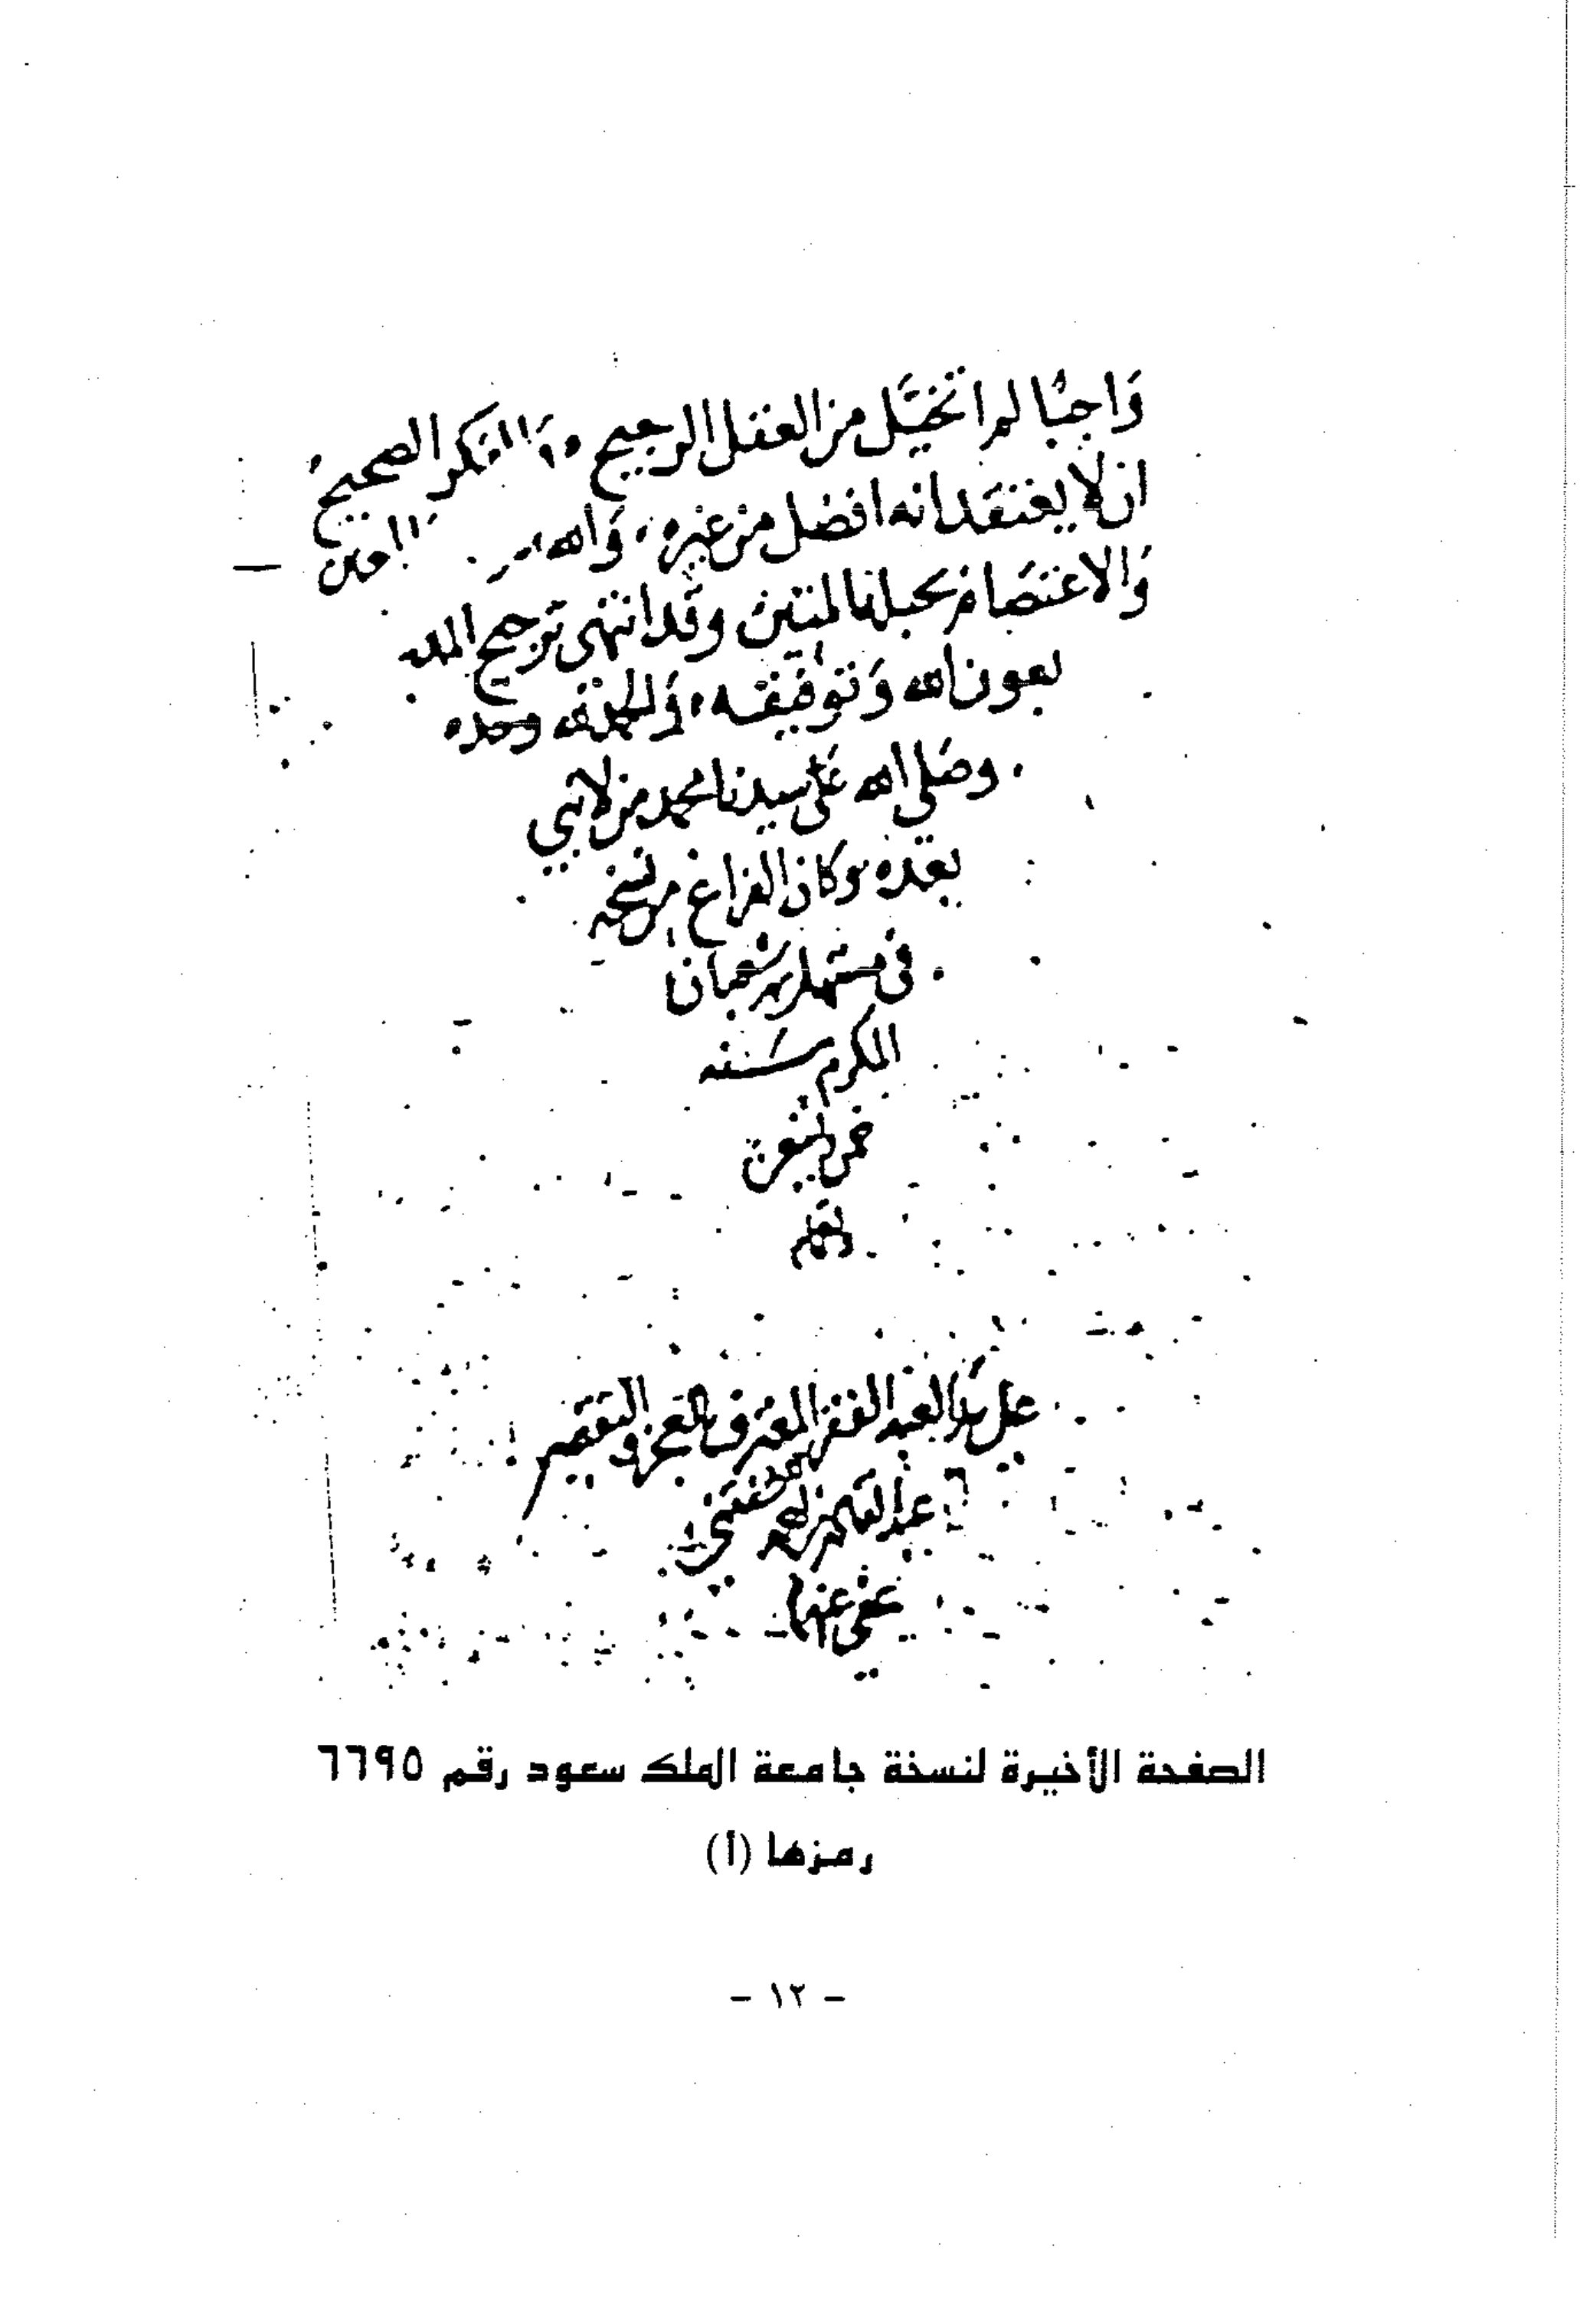 واجبا لم اتخيل من العقل الرجيح والفكر الصحيح
ان لا يعتقد انه افضل من غيره والله
والاعتصام بحبله المتين وقد انتهى ترجيح
بعون الله وتوفيقه والحمد لله وحده
وصلى الله على سيدنا محمد من لا نبي
بعده وكان الفراغ من نسخه
في مستهل شهر شعبان
المكرم سنه
على يد العبد الفقير المعترف بالعجز والتقصير
عفى عنهما
الصفحة الأخيرة لنسخة جامعة الملك سعود رقم ٦٦٩٥
رمزها (أ)
- ١٢ -